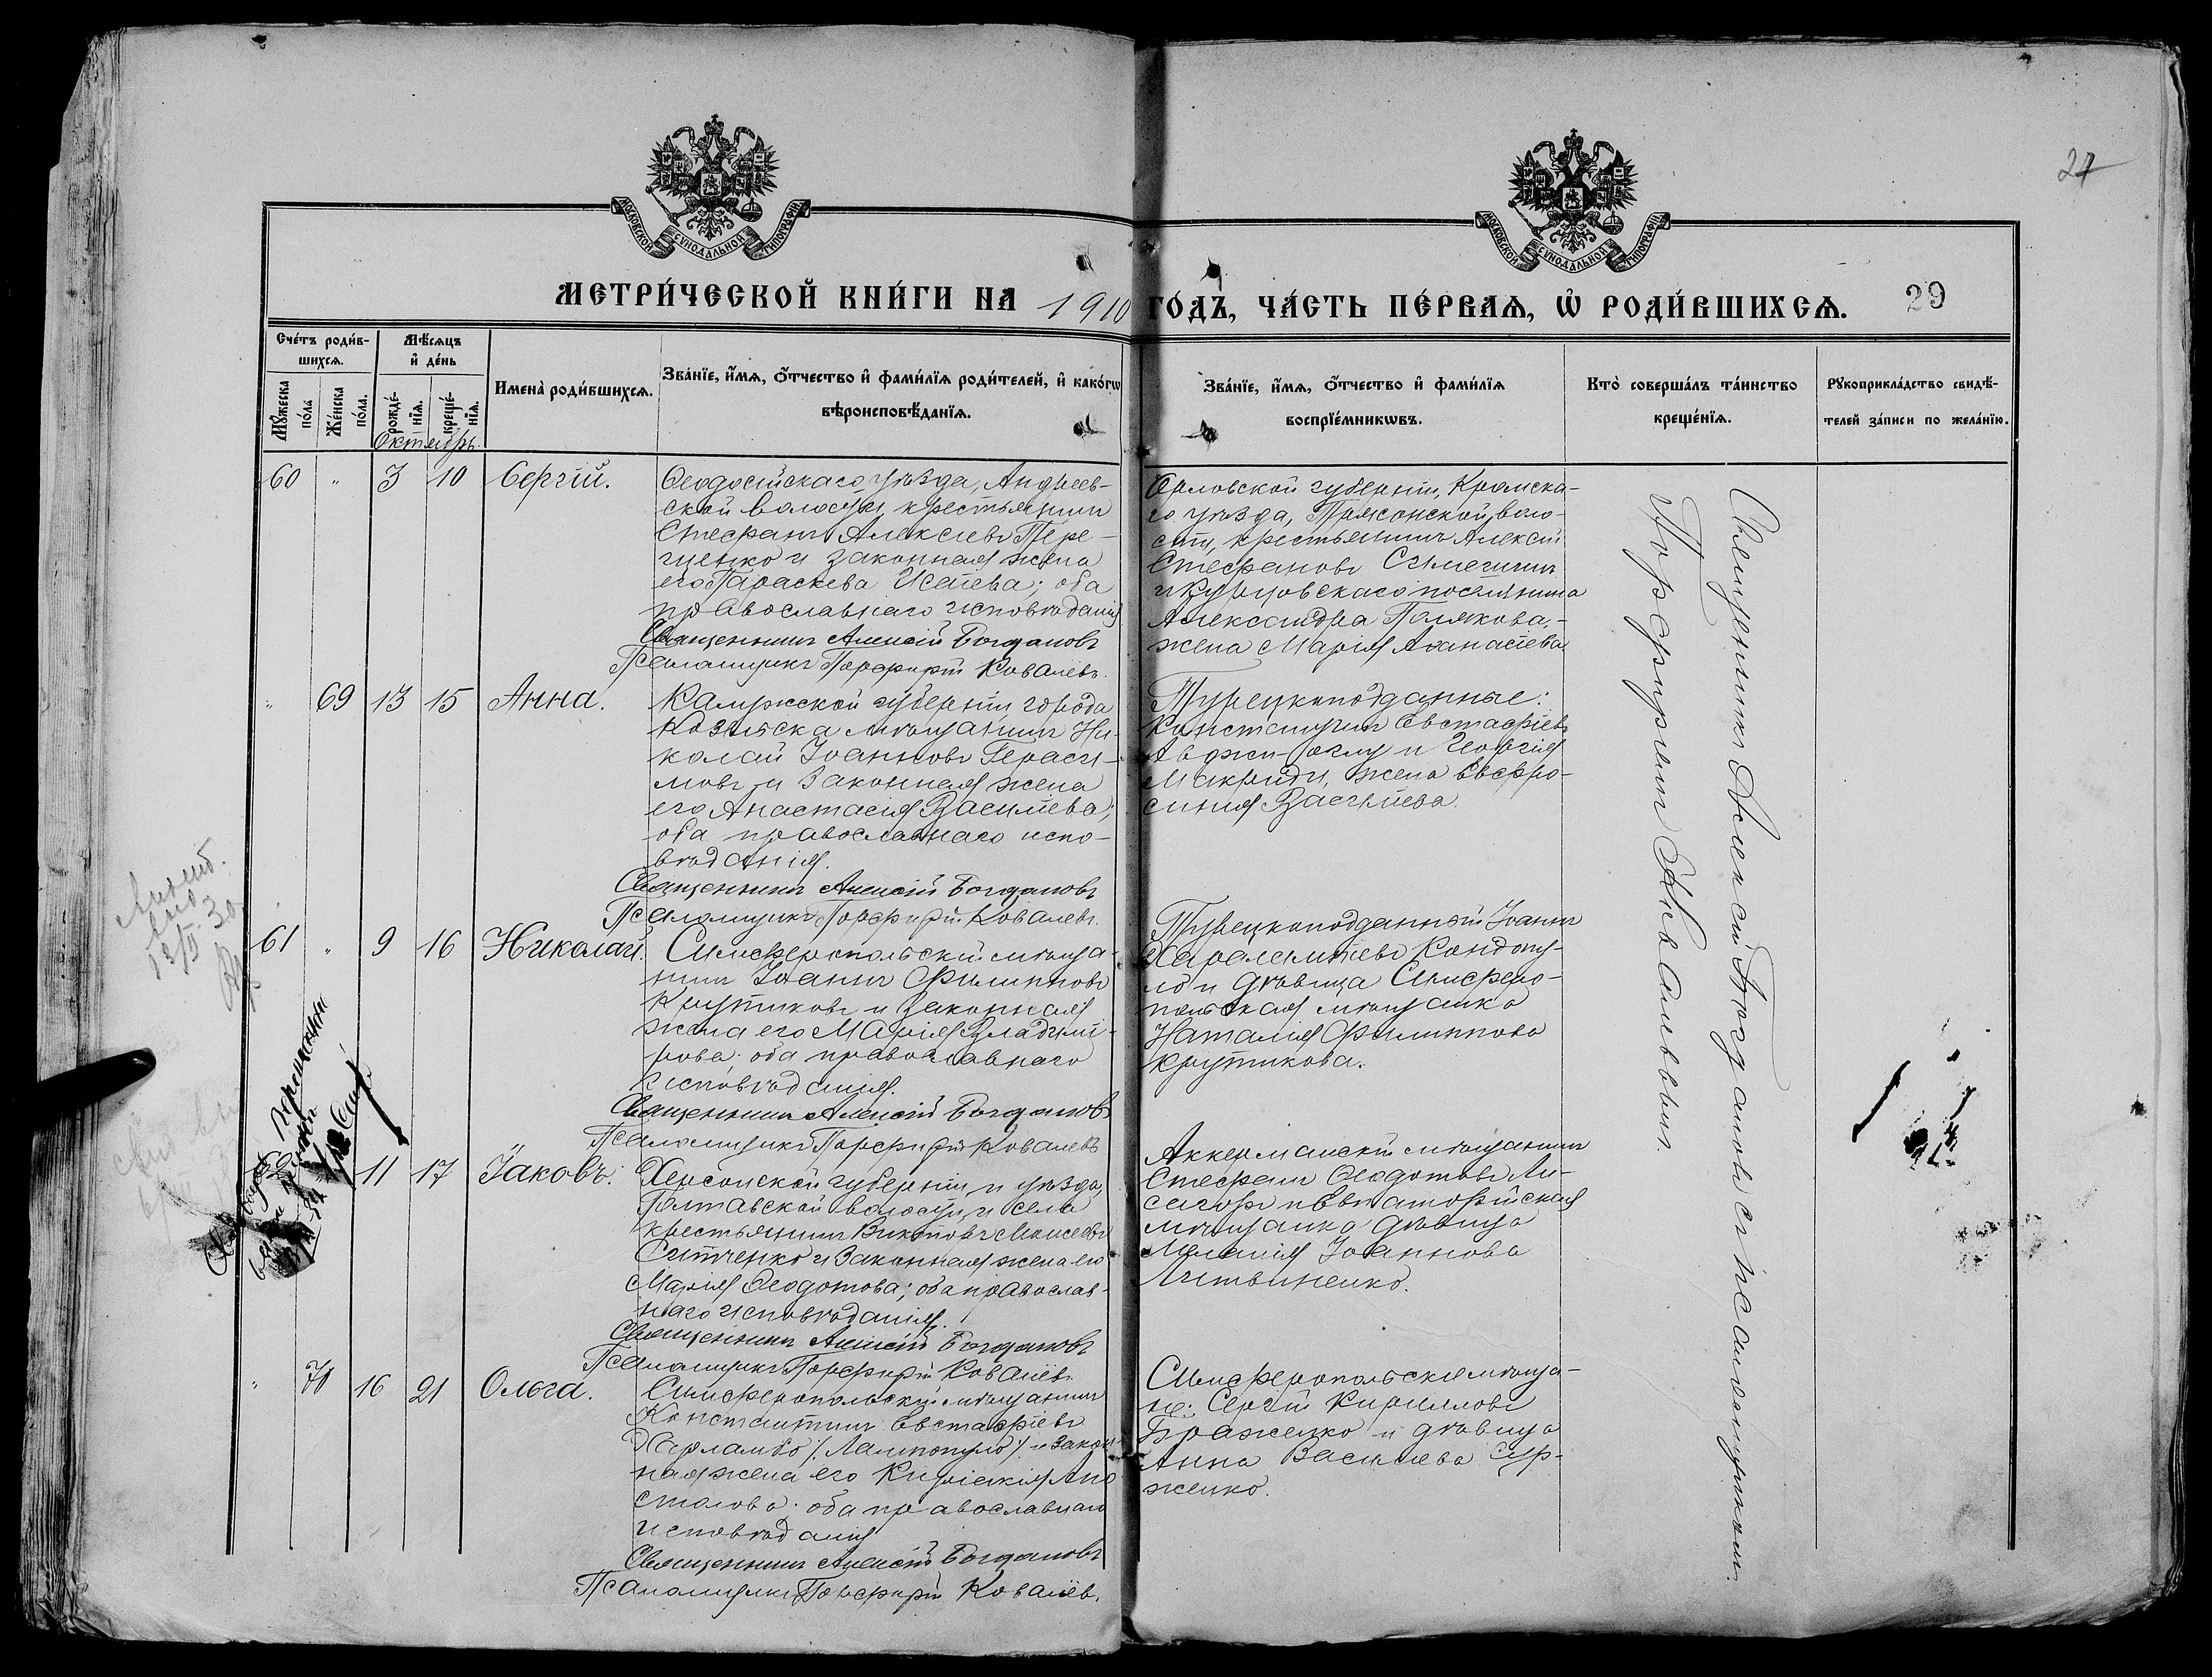 27
МОСКОВСКОЙ СѴНОДАЛЬНОЙ ТИПОГРАФІИ
МОСКОВСКОЙ СѴНОДАЛЬНОЙ ТИПОГРАФІИ
МЕТРИ́ЧЕСКОЙ КНИ́ГИ НА 1910 ГО́ДЪ, ЧА́СТЬ ПЕ́РВАѦ, Ѡ РОДИ́ВШИХСѦ. 29
Сче́тъ роди́в-
шихсѧ.
Мꙋ́жеска
по́ла
Же́нска
по́ла.
Мѣ́сѧцъ
и҆ де́нь
рожде́-
нїѧ.
креще́-
нїѧ.
Октябрь.
Имена̀ роди́вшихсѧ.
Зва́нїе, и҆́мѧ, ѻ҆́тчество и҆ фами́лїѧ роди́телей, и҆ како́гѡ
вѣроисповѣ́данїѧ.
Зва́нїе, и҆́мѧ, ѻ҆́тчество и҆ фами́лїѧ
воспрїе́мникѡвъ.
Кто̀ соверша́лъ та́инство
креще́нїѧ.
Рꙋкоприкла́дство свидѣ́-
телей за́писи по жела́нїю.
60 " 3 10 Сергій.
Ѳеодосійскаго уѣзда, Андреев-
ской волости, крестьянинъ
Стефанъ Алексіевъ Пере-
и законная жена
его Параскева Исаіева; оба
православнаго исповѣданія
Священникъ Алексій Богдановъ
Псаломщикъ Порфирій Ковалевъ.
Орловской губерніи, Кромска-
го уѣзда, воло-
сти, крестьянинъ Алексій
Стефановъ
и поселянина
Александра Полякова,-
жена Марія Аѳанасіева.
" 69 13 15 Анна.
Калужской губерніи города
Козельска мѣщанинъ Ни-
колай Іоанновъ Гераси-
мовъ и законная жена
его Анастасія Василіева;
оба православнаго испо-
вѣданія.
Священникъ Алексій Богдановъ
Псаломщикъ Порфирій Ковалевъ.
Турецкоподданные:
Константинъ Евстафіевъ
Авджи-оглу и Георгія
Макриди, жена Евфро-
синія Василіева.
61 " 9 16 Николай.
Симферопольскій мѣща-
нинъ Іоаннъ Филипповъ
Крутиковъ и законная
жена его Марія Владимі-
рова; оба православнаго
исповѣданія.
Священникъ Алексій Богдановъ
Псаломщикъ Порфирій Ковалевъ
Турецкоподданный Іоаннъ
Харалампіевъ Кондопу-
ло и дѣвица Симферо-
польская мѣщанка
Наталія Филиппова
Крутикова.
62 11 17 Іаковъ.
Херсонской губерніи и уѣзда,
Полтавской волости и села
крестьянинъ Викторъ Моисеевъ
и законная жена его
Марія Ѳеодотова; оба православ-
наго исповѣданія.
Священникъ Алексій Богдановъ
Псаломщикъ Порфирій Ковалевъ
Аккерманскій мѣщанинъ
Стефанъ Ѳеодотовъ Ли-
и Евпаторійская
мѣщанка дѣвица
Меланія Іоаннова
Литвиненко.
" 70 16 21 Ольга.
Симферопольскій мѣщанинъ
Константинъ Евстафіевъ
/Лампопуло/ и закон-
ная жена его Киріакія Апо-
столова; оба православнаго
исповѣданія
Священникъ Алексій Богдановъ
Псаломщикъ Порфирій Ковалев.
Симферопольскіе мѣща-
не: Сергій Кирилловъ
Браженко и дѣвица
Анна Василіева Сер-
женко.
Священникъ Алексій Богдановъ с псаломщикомъ
Порфиріемъ Ковалевымъ.